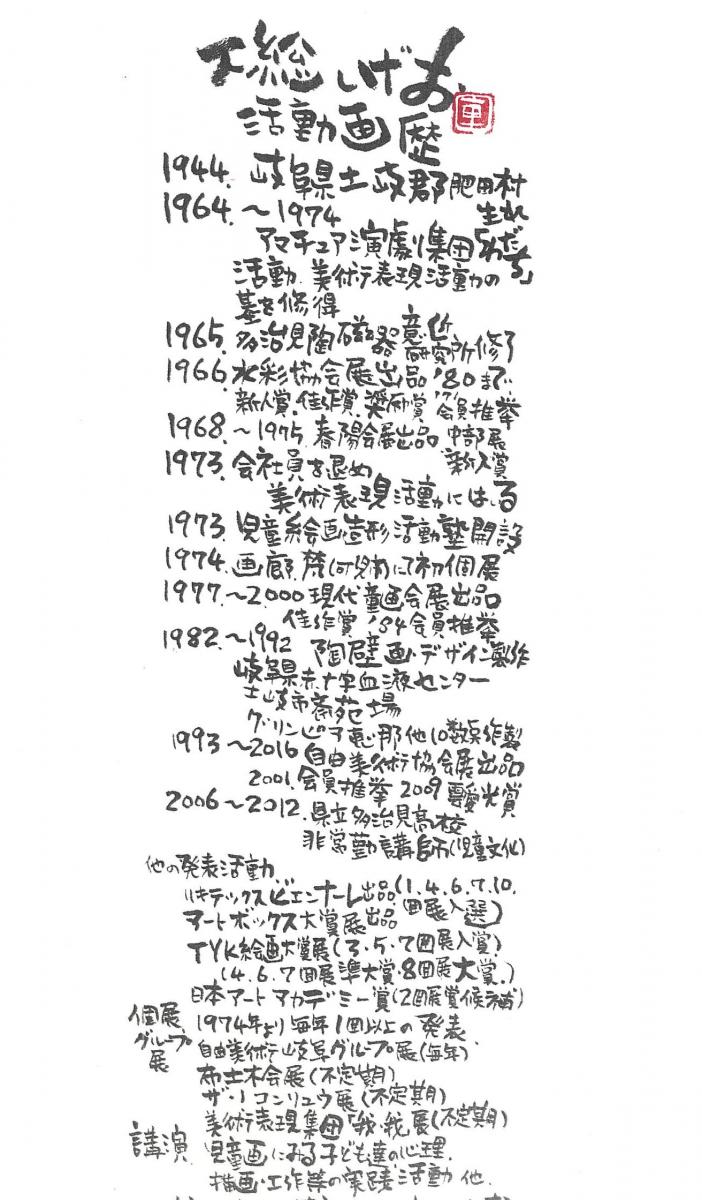 総 いげお
車
活動画歴
1944. 岐阜県土岐郡肥田村
生れ
1964.～1974
アマチュア演劇集団「わだち」
活動. 美術表現活動の
基を修得
1965. 多治見陶磁器意匠
研究所修了
1966. 水彩協会展出品 '80まで
新人賞.佳作賞.奨励賞 '71会員推挙
1968.～1975 春陽会展出品 中部展
新人賞
1973. 会社員を退め
美術表現活動にはいる
1973. 児童絵画造形活動塾開設
1974. 画廊 梵(可児市)にて初個展
1977～2000 現代童画会展出品
佳作賞 '84会員推挙
1982～1992 陶壁画・デザイン製作
岐阜県赤十字血液センター
土岐市斎苑場
グリンピア恵那他10数点作製
1993～2016 自由美術協会展出品
2001.会員推挙 2009 靉光賞
2006～2012. 県立多治見高校
非常勤講師(児童文化)
他の発表活動
リキテックスビエンナーレ出品(1.4.6.7.10.
回展入選)
アートボックス大賞展出品
TYK絵画大賞展(3・5・7回展入賞)
(4.6.7回展準大賞・8回展大賞.)
日本アートアカデミー賞(2回展賞候補)
個展 1974年より毎年1回以上の発表
グループ展 自由美術岐阜グループ展(毎年)
布土木会展(不定期)
ザ・コンリュウ展(不定期)
美術表現集団「我・我」展(不定期)
講演 児童画にみる子ども達の心理.
描画・工作等の実践活動 他.